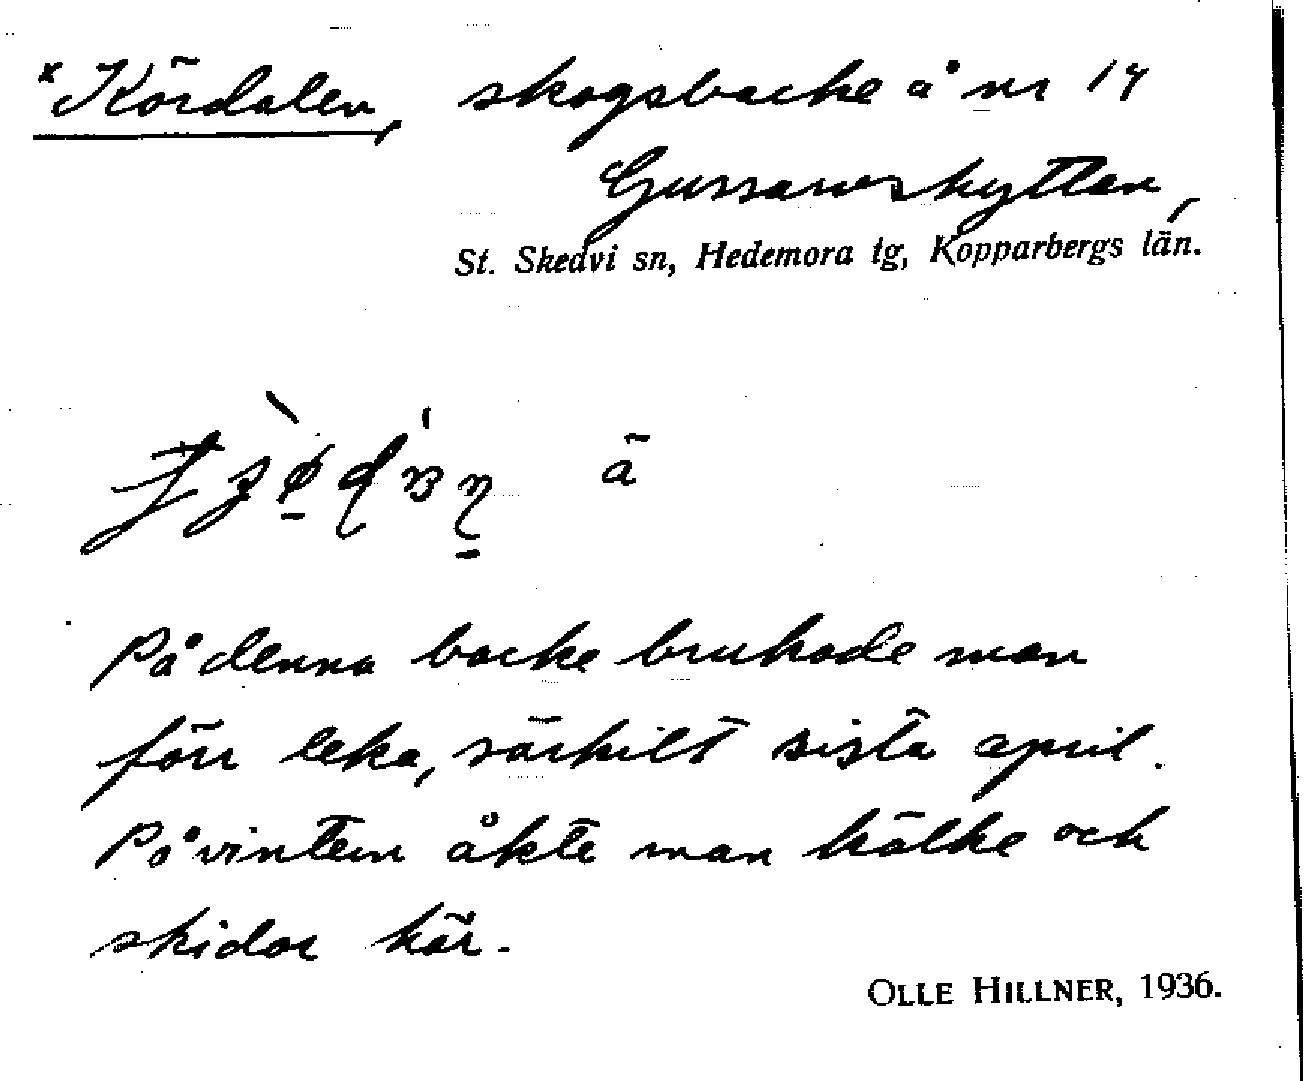 *Kördalen, skogsbacke å nr 14
Gussarvshyttan,
St. Skedvi sn, Hedemora tg, Kopparbergs län.
ā
På denna backe brukade man
förr leka, särkilt sista april.
På vintern åkte man kälke och
skidor här.
OLLE HILLNER, 1936.